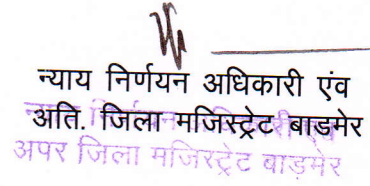 न्याय निर्णयन अधिकारी एंव
अति. जिला मजिस्ट्रेट बाडमेर
अपर जिला मजिस्ट्रेट बाड़मेर